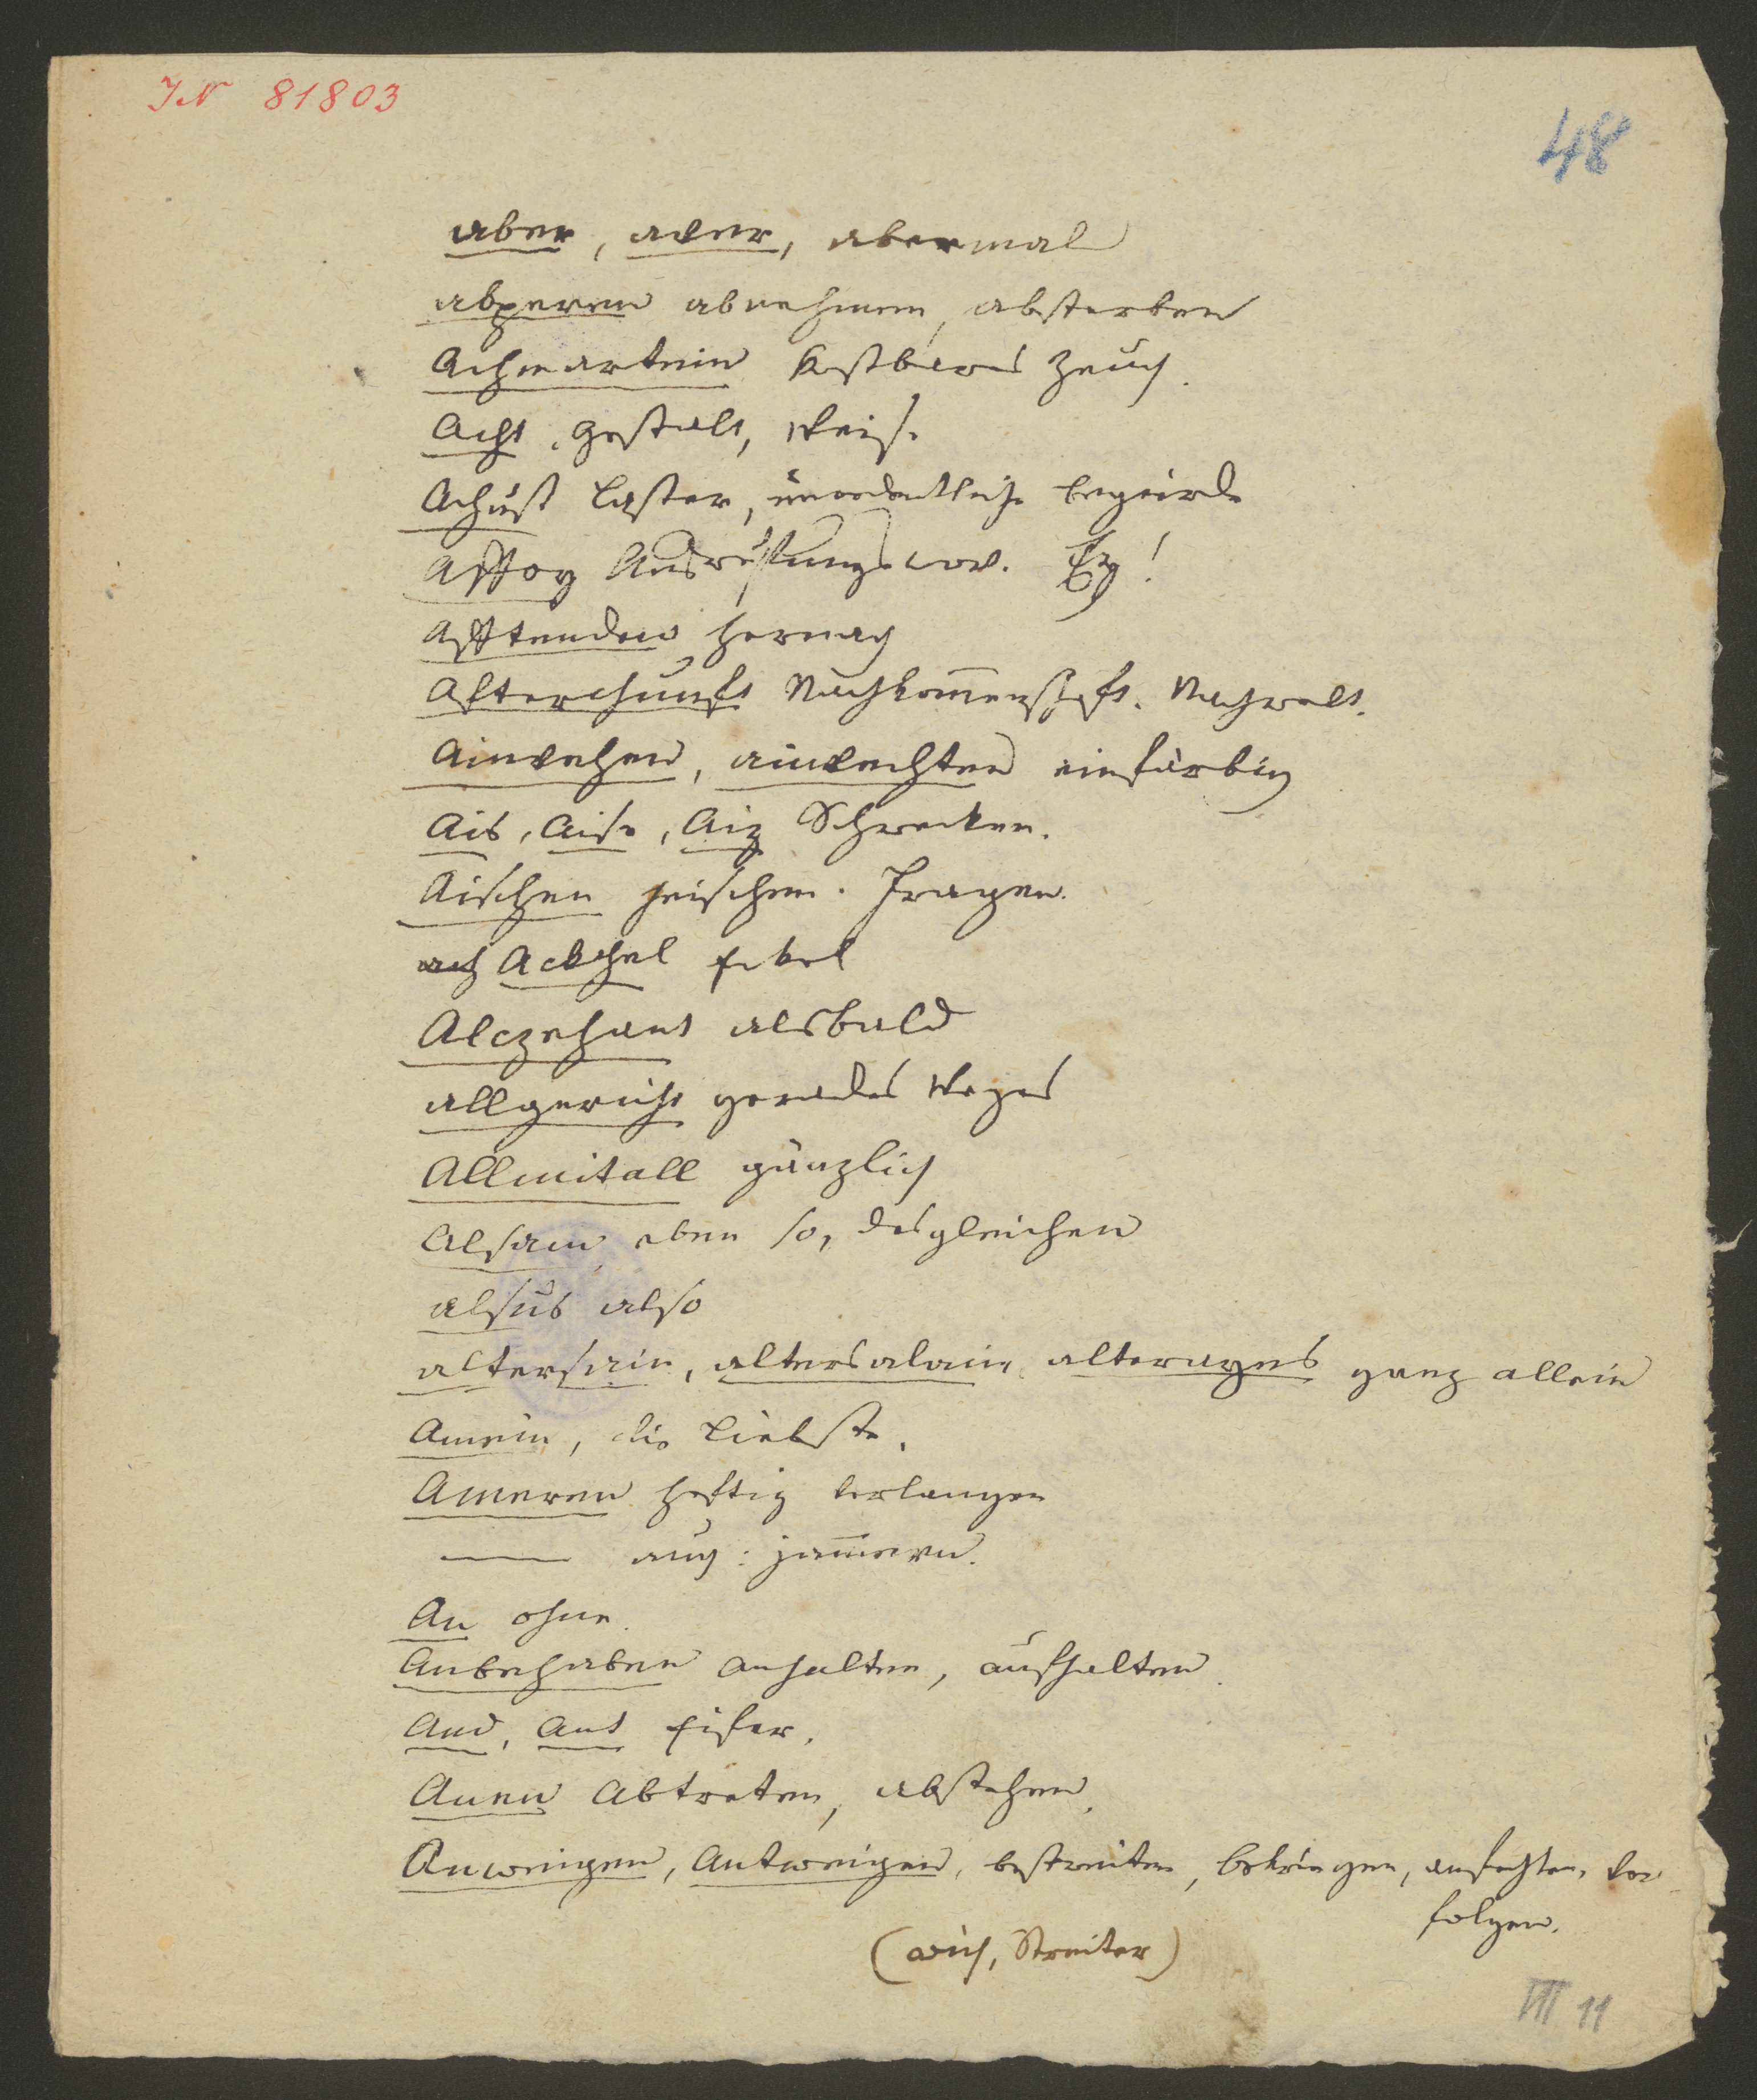 JN 81803
48
aber, aver, abermal
abseren abnehmen, absterben
Achmartein Kostbares Zeuch.
Acht. Gestalt, Weise
Achust Laster, unordentliche begierde
Affoy Ausruffungswor. Ey!
Afftenden hernach
Afterchunft Nachkom̅enschaft. Nachwelt.
Ainvehen, ainvechten einfärbig
Ais, Aise, Aiz Schrecken.
Aischen heischen. Fragen.
ach Ackhel Eckel
Alczehant alsbald
allgericht gerades Weges
Allmitall gänzlich
Alsam eben so, desgleichen
alsus also
altersain, altersalain, alterages ganz allein
Amein, die Liebste.
Ameren heftig verlangen
—— auch: jam̅ern.
An ohne.
Anbehaben anhalten, aufhalten.
And, Ant Eifer.
Anen Abtreten, abstehen.
Anweigen, Antweigen, bestreiten, bekriegen, anfechten, ver
folgen.
(wich, Streiter)
VIII 11